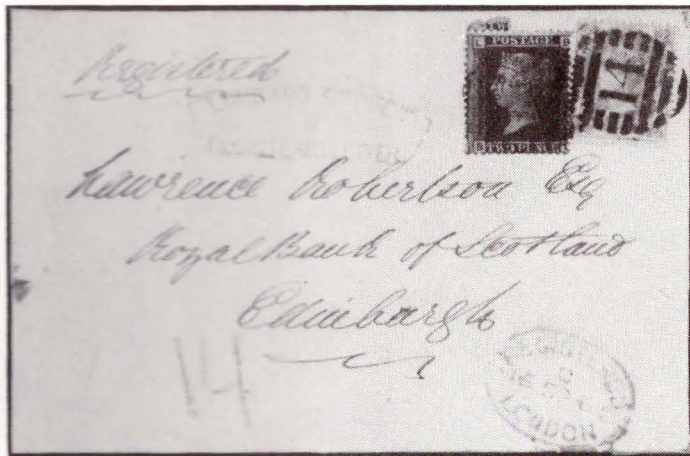 Registered
POSTAGE
TWO PENCE
14
Lawrence Robertson Esq
Royal Bank of Scotland
Edinburgh
14
REGISTERED
LONDON